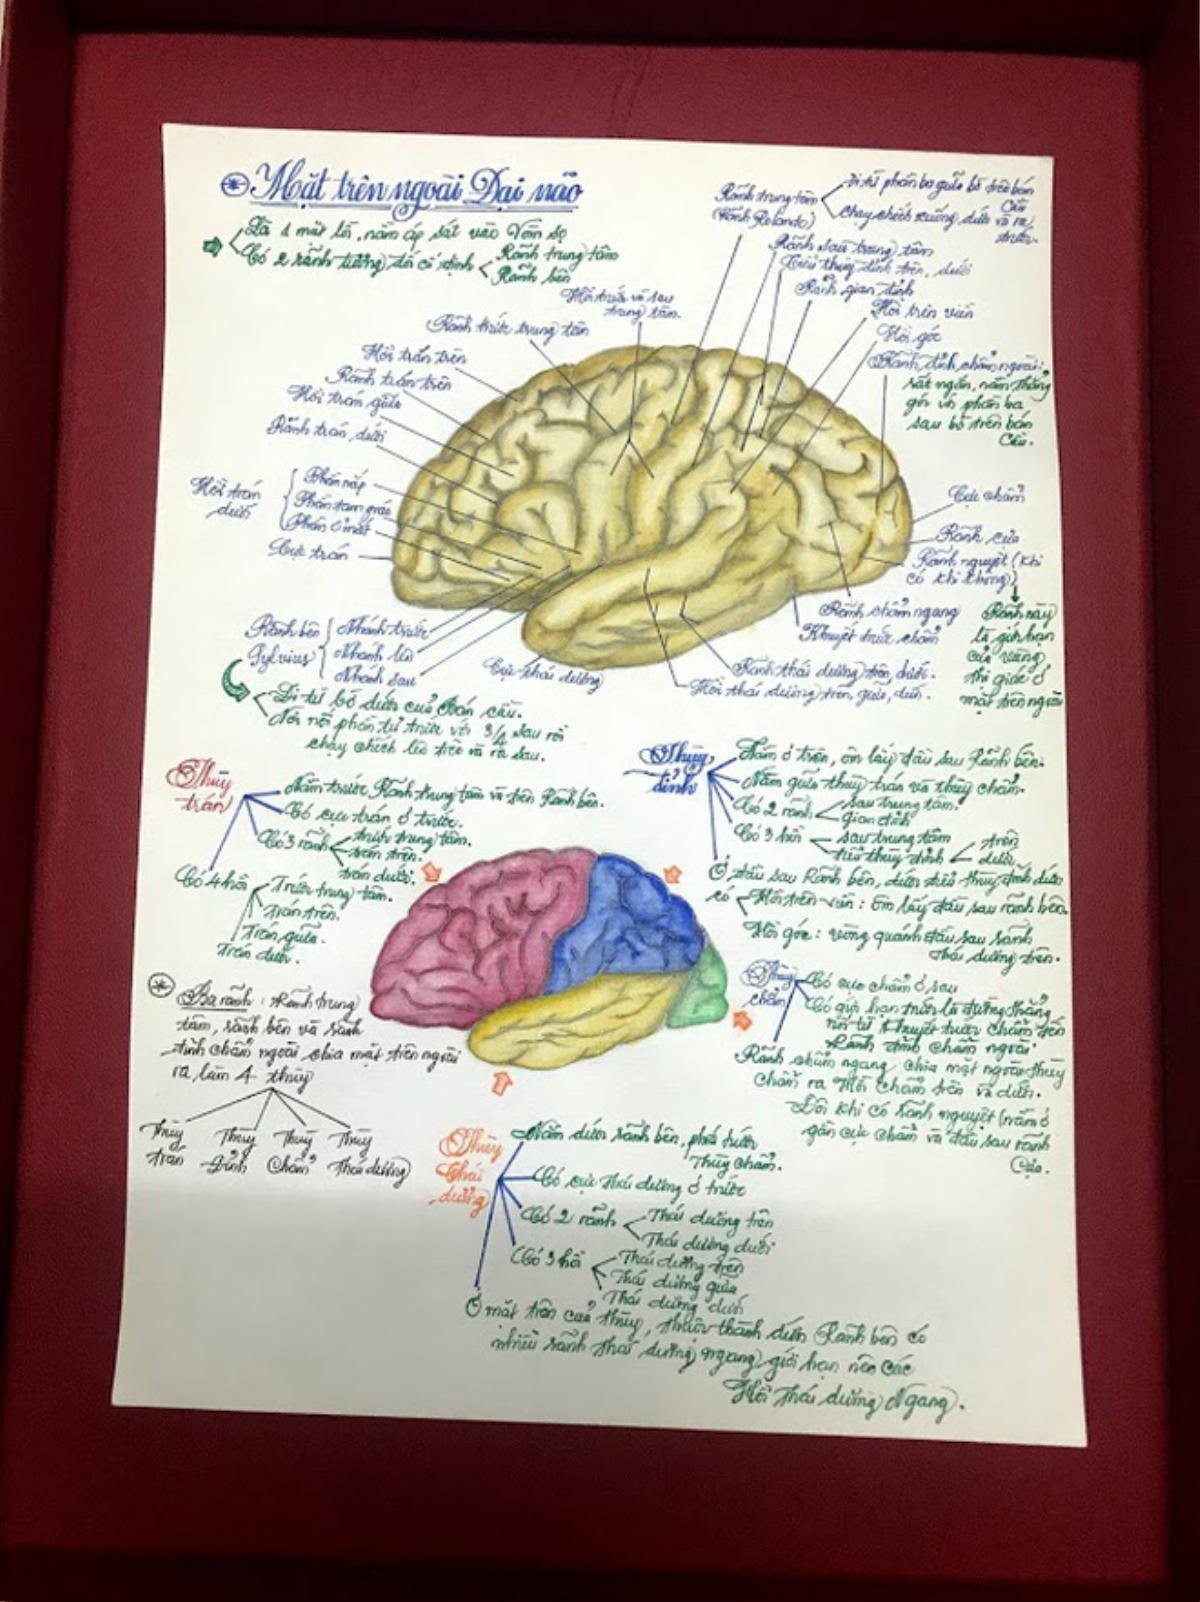 Mặt trên ngoài Đại não
Là 1 mặt lồi, nằm áp sát vào Vòm sọ
Có 2 rãnh tương đối cố định
Rãnh trung tâm
Rãnh bên
Rãnh trung tâm
(Rãnh Rolando)
đi từ phần ba giữa bờ trên bán
Cầu
chạy chếch xuống dưới và ra
trước.
Rãnh sau trung tâm
Tiểu thùy đỉnh trên, dưới
Rãnh gian đỉnh
Hồi trên viền
Hồi góc
Rãnh đỉnh chẩm ngoài:
rất ngắn, nằm thẳng
góc với phần ba
sau bờ trên bán
Cầu.
Hồi trước và sau
trung tâm.
Rãnh trước trung tâm
Hồi trán trên
Rãnh trán trên
Hồi trán giữa
Rãnh trán dưới
Hồi trán
dưới
Phần nắp
Phần tam giác
Phần ổ mắt
Cực trán
Rãnh bên
Sylvius
Nhánh trước
Nhánh lên
Nhánh sau
Cực thái dương
Cực chẩm
Rãnh cựa
Rãnh nguyệt (khi
có khi không)
Rãnh này
là giới hạn
của vùng
thị giác ở
mặt trên ngoài
Rãnh chẩm ngang
Khuyết trước chẩm
Rãnh thái dương trên, dưới.
Hồi thái dương trên, giữa, dưới.
Đi từ bờ dưới của Bán cầu.
Nơi nối phần tư trước với 3/4 sau rồi
chạy chếch lên trên và ra sau.
Thùy
trán
Nằm trước Rãnh trung tâm và trên Rãnh bên.
Có cực trán ở trước.
Có 3 rãnh
trước trung tâm.
trán trên.
trán dưới.
Có 4 hồi
Trước trung tâm.
Trán trên.
Trán giữa.
Trán dưới.
Thùy
đỉnh
Nằm ở trên, ôm lấy đầu sau Rãnh bên.
Nằm giữa thùy trán và thùy chẩm.
Có 2 rãnh
sau trung tâm.
gian đỉnh
Có 3 hồi
sau trung tâm
tiểu thùy đỉnh
trên
dưới
Ở đầu sau Rãnh bên, dưới tiểu thùy đỉnh dưới
có
Hồi trên viền: ôm lấy đầu sau rãnh bên.
Hồi góc: vòng quanh đầu sau rãnh
thái dương trên.
Ba rãnh: Rãnh trung
tâm, rãnh bên và rãnh
đỉnh chẩm ngoài chia mặt trên ngoài
ra làm 4 thùy
Thùy
trán
Thùy
Đỉnh
Thùy
Chẩm
Thùy
Thái dương
Thùy
chẩm
Có cực chẩm ở sau
Có giới hạn trước là đường thẳng
nối từ khuyết trước chẩm đến
Rãnh đỉnh chẩm ngoài
Rãnh chẩm ngang chia mặt ngoài thùy
chẩm ra Hồi Chẩm trên và dưới.
Đôi khi có Rãnh nguyệt (nằm ở
gần cực chẩm và đầu sau rãnh
Cựa.
Thùy
thái
dương
Nằm dưới rãnh bên, phía trước
Thùy chẩm.
Có cực Thái dương ở trước
Có 2 rãnh
Thái dương trên
Thái dương dưới
Có 3 hồi
Thái dương trên
Thái dương giữa
Thái dương dưới
Ở mặt trên của thùy, thuộc thành dưới Rãnh bên có
nhiều rãnh thái dương ngang giới hạn nên các
Hồi Thái dương Ngang.